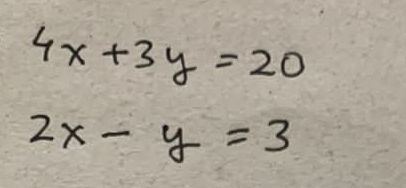 4x + 3y = 20
2x - y = 3